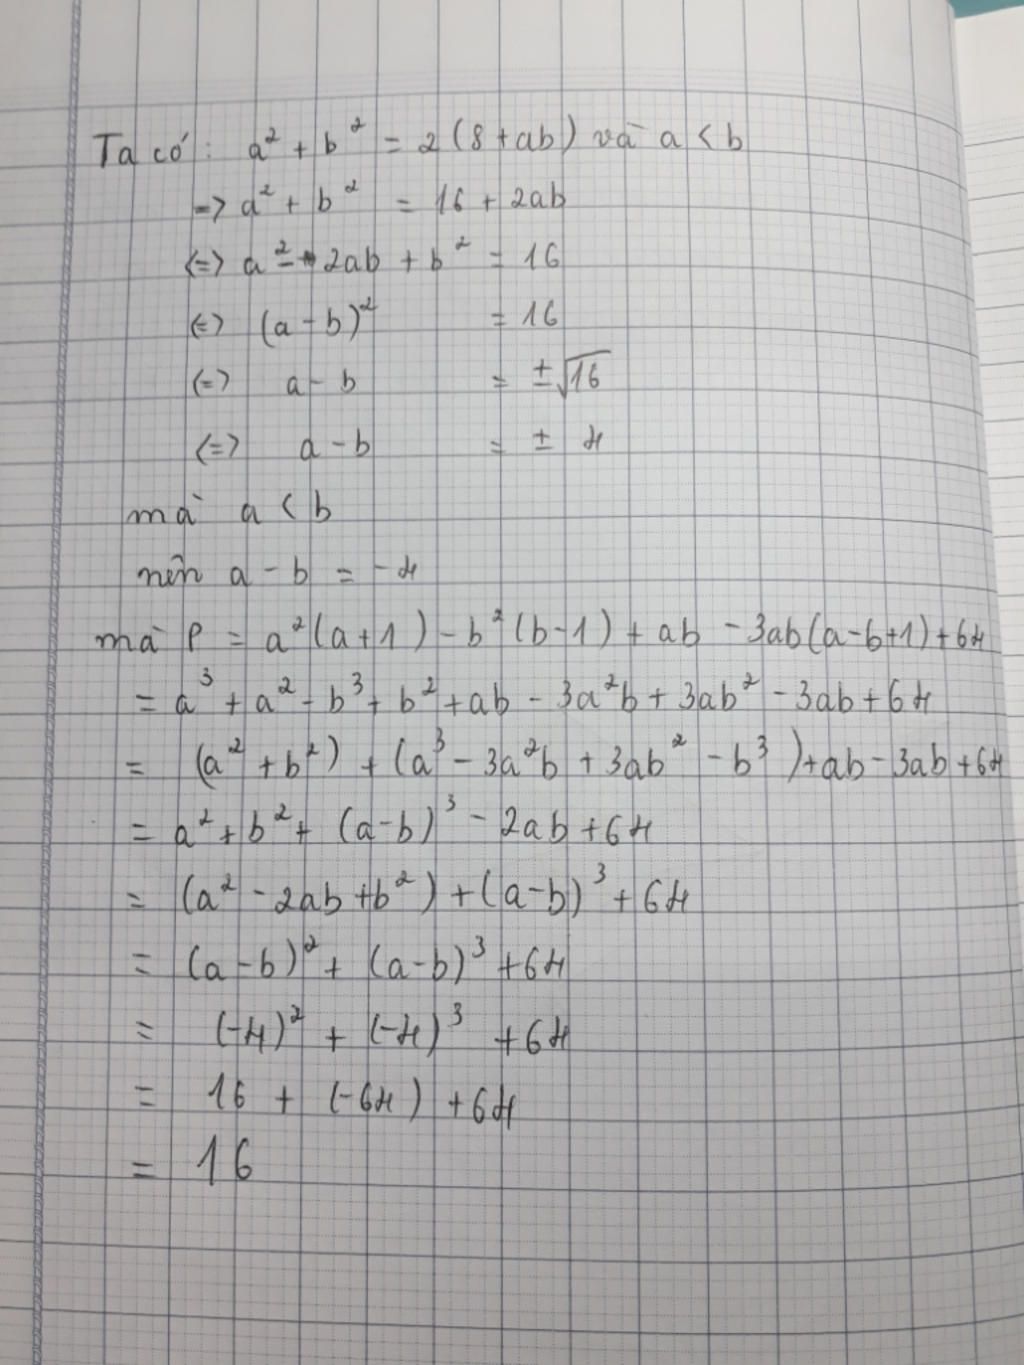 Ta có: a² + b² = 2(8 + ab) và a < b
=> a² + b² = 16 + 2ab
<=> a² - 2ab + b² = 16
<=> (a - b)² = 16
<=> a - b = ±√16
<=> a - b = ± 4
mà a < b
nên a - b = -4
mà P = a²(a+1) - b²(b-1) + ab - 3ab(a-b+1) + 64
= a³ + a² - b³ + b² + ab - 3a²b + 3ab² - 3ab + 64
= (a² + b²) + (a³ - 3a²b + 3ab² - b³) + ab - 3ab + 64
= a² + b² + (a-b)³ - 2ab + 64
= (a² - 2ab + b²) + (a-b)³ + 64
= (a-b)² + (a-b)³ + 64
= (-4)² + (-4)³ + 64
= 16 + (-64) + 64
= 16